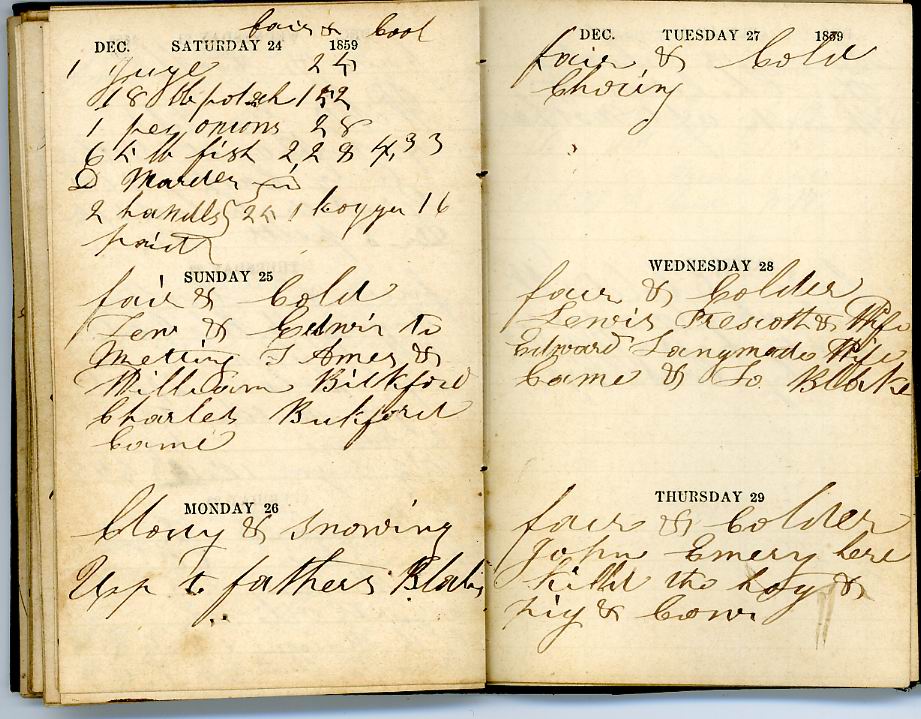 fair & cool
DEC. SATURDAY 24 1859
1 Juge 25
18 lb potash 1 52
1 pes onions 28
6 5 lb fish 2 2 8 4,33
D Marder
2 handls 25 1 kogger 16
paid
SUNDAY 25
fair & Cold
Lew & Edwin to
Metting J Ames &
William Bickford
Charles Bickford
Came
MONDAY 26
Clouy & snowing
Upp to fathers Blakes
DEC. TUESDAY 27 1859
fair & Cold
Choring
WEDNESDAY 28
fair & Colder
Lewis Prescott & Wife
Edward Langmado Wife
Came & To Blake
THURSDAY 29
fair & Colder
John Emery here
killd the hog &
pig & Cow